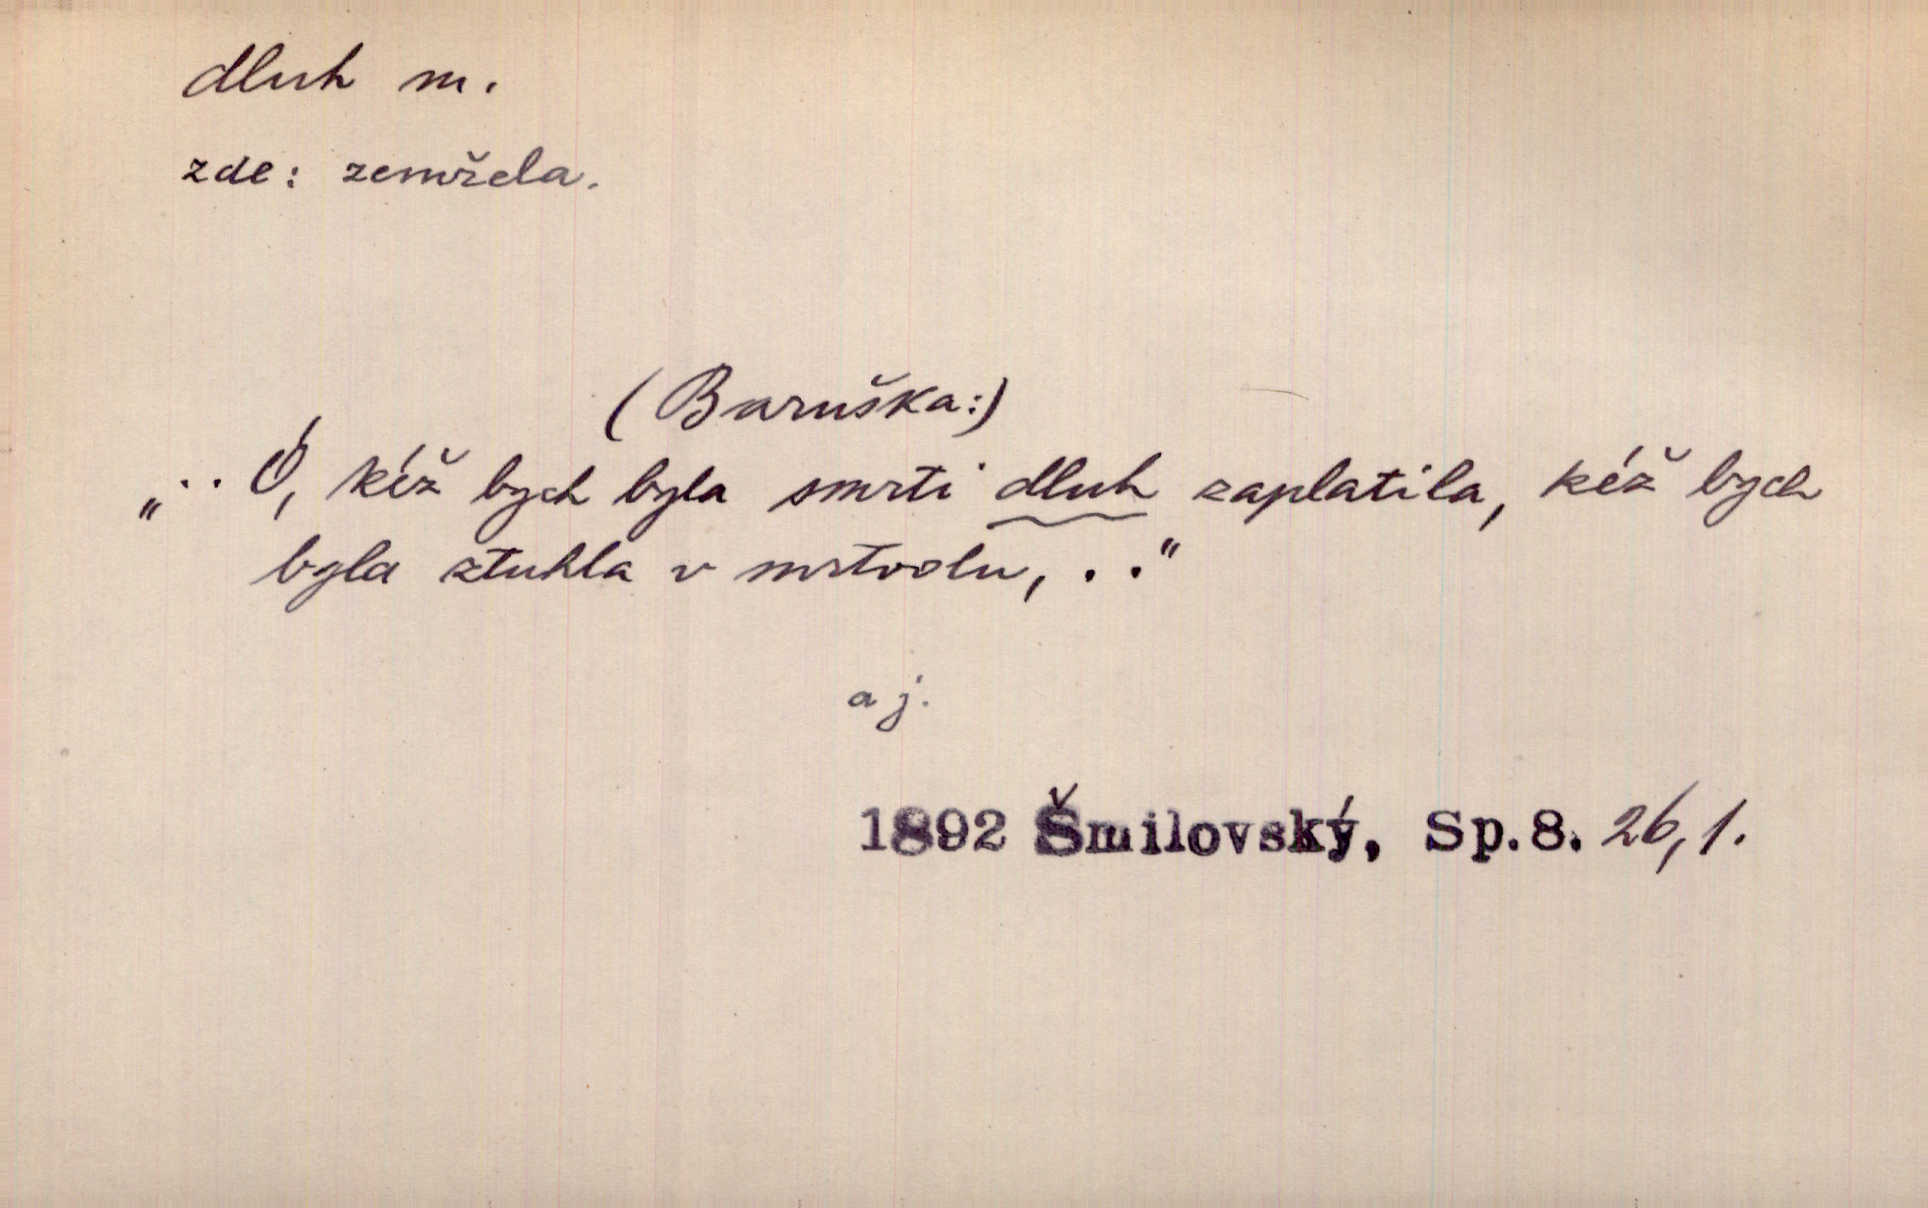 dluh m.
zde: zemřela.
(Baruška:)
„.. Ó, kéž bych byla smrti dluh zaplatila, kéž bych
byla ztuhla v mrtvolu, . ."
a j.
1892 Šmilovský, Sp.8. 26,1.